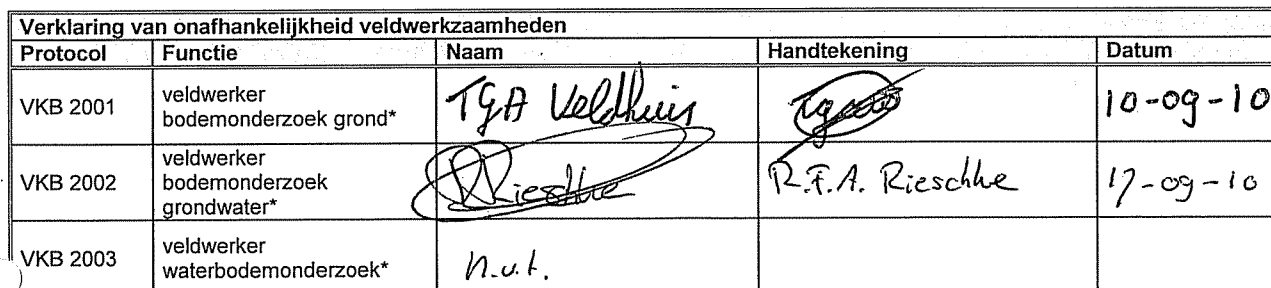 Verklaring van onafhankelijkheid veldwerkzaamheden
Protocol Functie Naam Handtekening Datum
VKB 2001 veldwerker bodemonderzoek grond* TGA Veldhuis 10-09-10
VKB 2002 veldwerker bodemonderzoek grondwater* Rieschke R.F.A. Rieschke 17-09-10
VKB 2003 veldwerker waterbodemonderzoek* n.v.t.